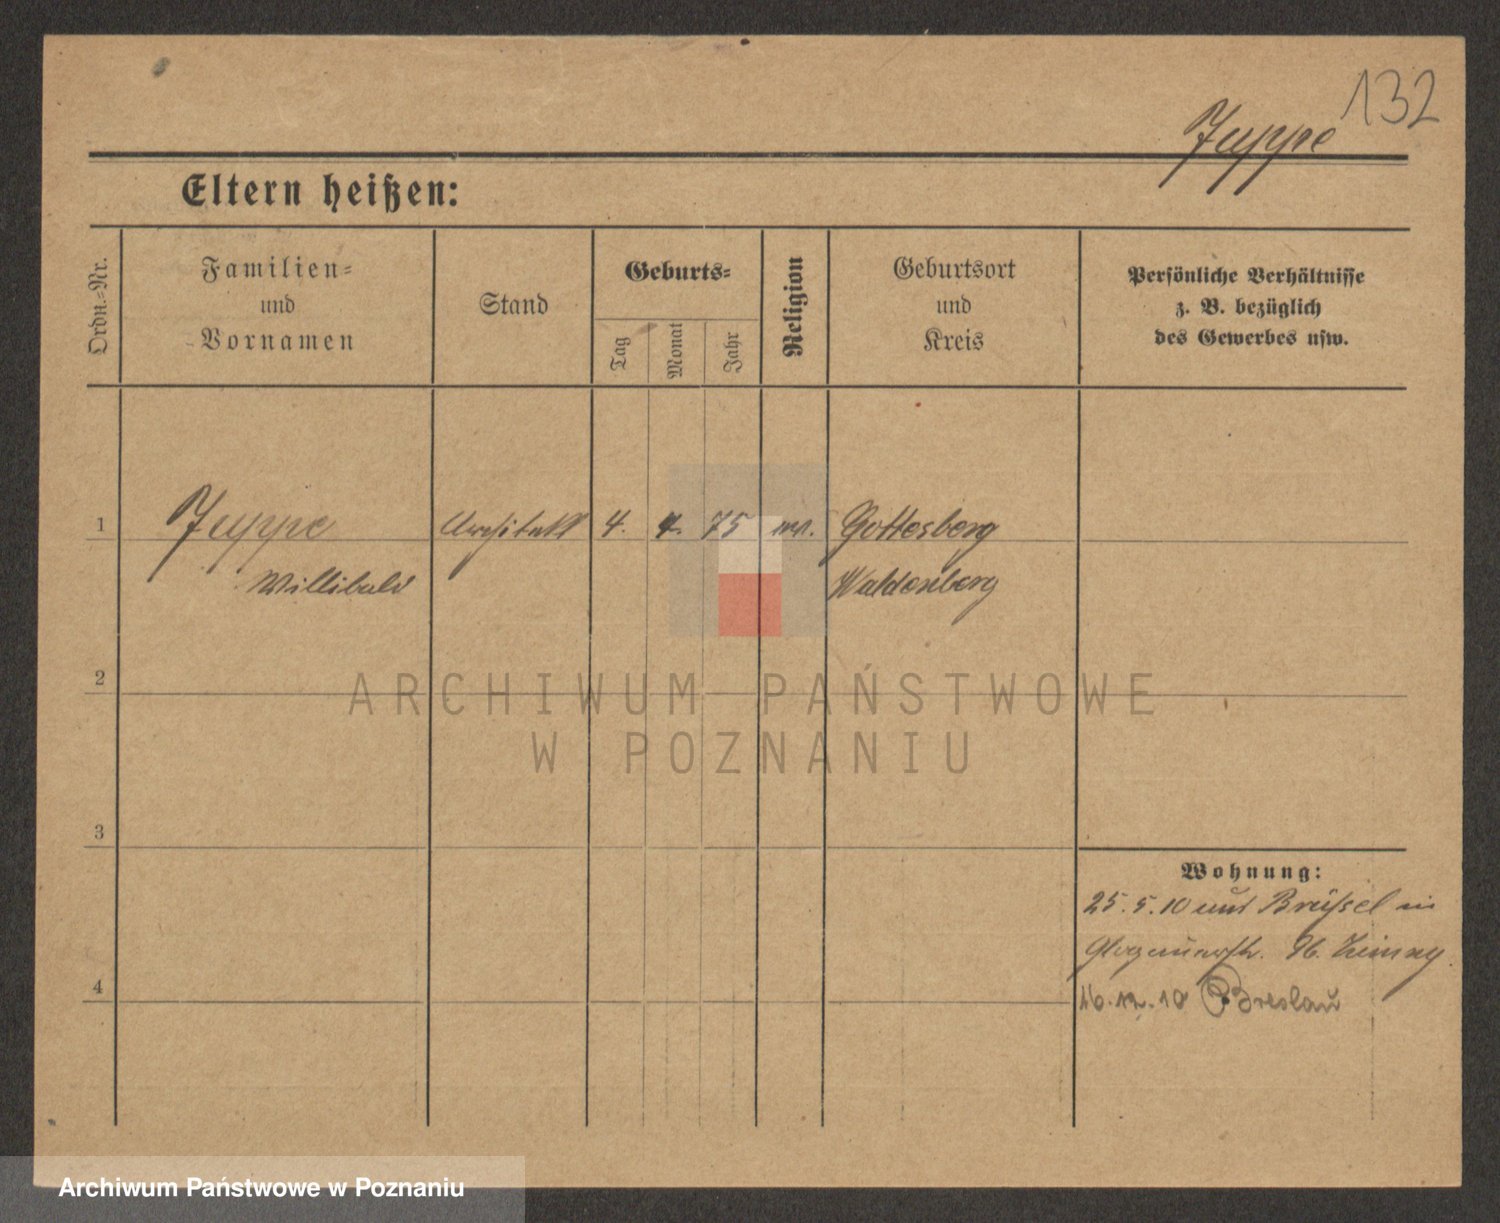 132
Juppe
Eltern heißen:
Ordn.-Nr.
Familien-
und
Vornamen
Stand
Geburts-
Tag
Monat
Jahr
Religion
Geburtsort
und
Kreis
Persönliche Verhältnisse
z. B. bezüglich
des Gewerbes usw.
1
Juppe
Architekt
4.
4.
75
Gottesberg
Willibald
Waldenberg
ARCHIWUM PAŃSTWOWE
W POZNANIU
2
3
4
Wohnung:
25. 5. 10 aus Brüssel in
Glogauerstr. 96.
16. 12. 10 Breslau
Archiwum Państwowe w Poznaniu